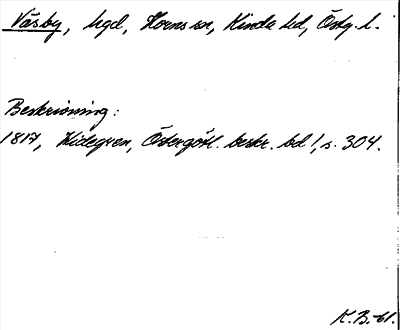 Väsby, hgd, Horns sn, Kinda hd, Östg. l.
Beskrivning:
1817, Widegren, Östergötl. beskr. bd 1, s. 304.
K.B.-61.